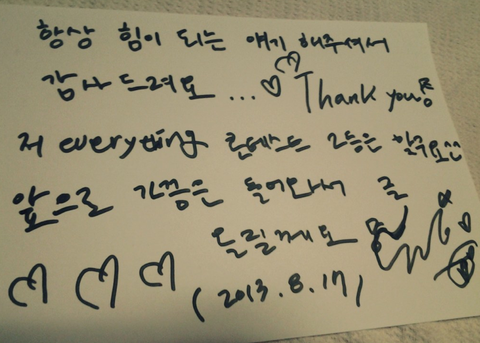 항상 힘이 되는 얘기 해주셔서
감사드려요 ... ♡♡ Thank you
저 everything 콘테스트 2등은 할구요^^
앞으로 가끔은 들어와서 글
올릴께요
♡ ♡ ♡ (2013.8.17)